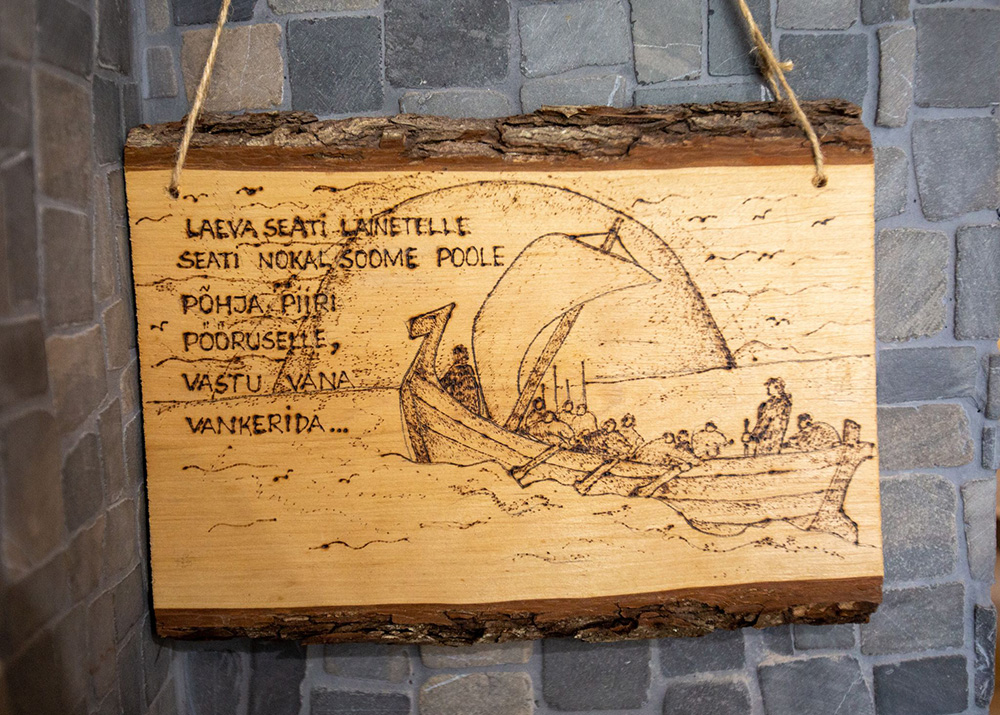 LAEVA SEATI LAINETELLE
SEATI NOKAL SOOME POOLE
PÕHJA PIIRI
PÖÖRUSELLE,
VASTU VANA
VANKERIDA...